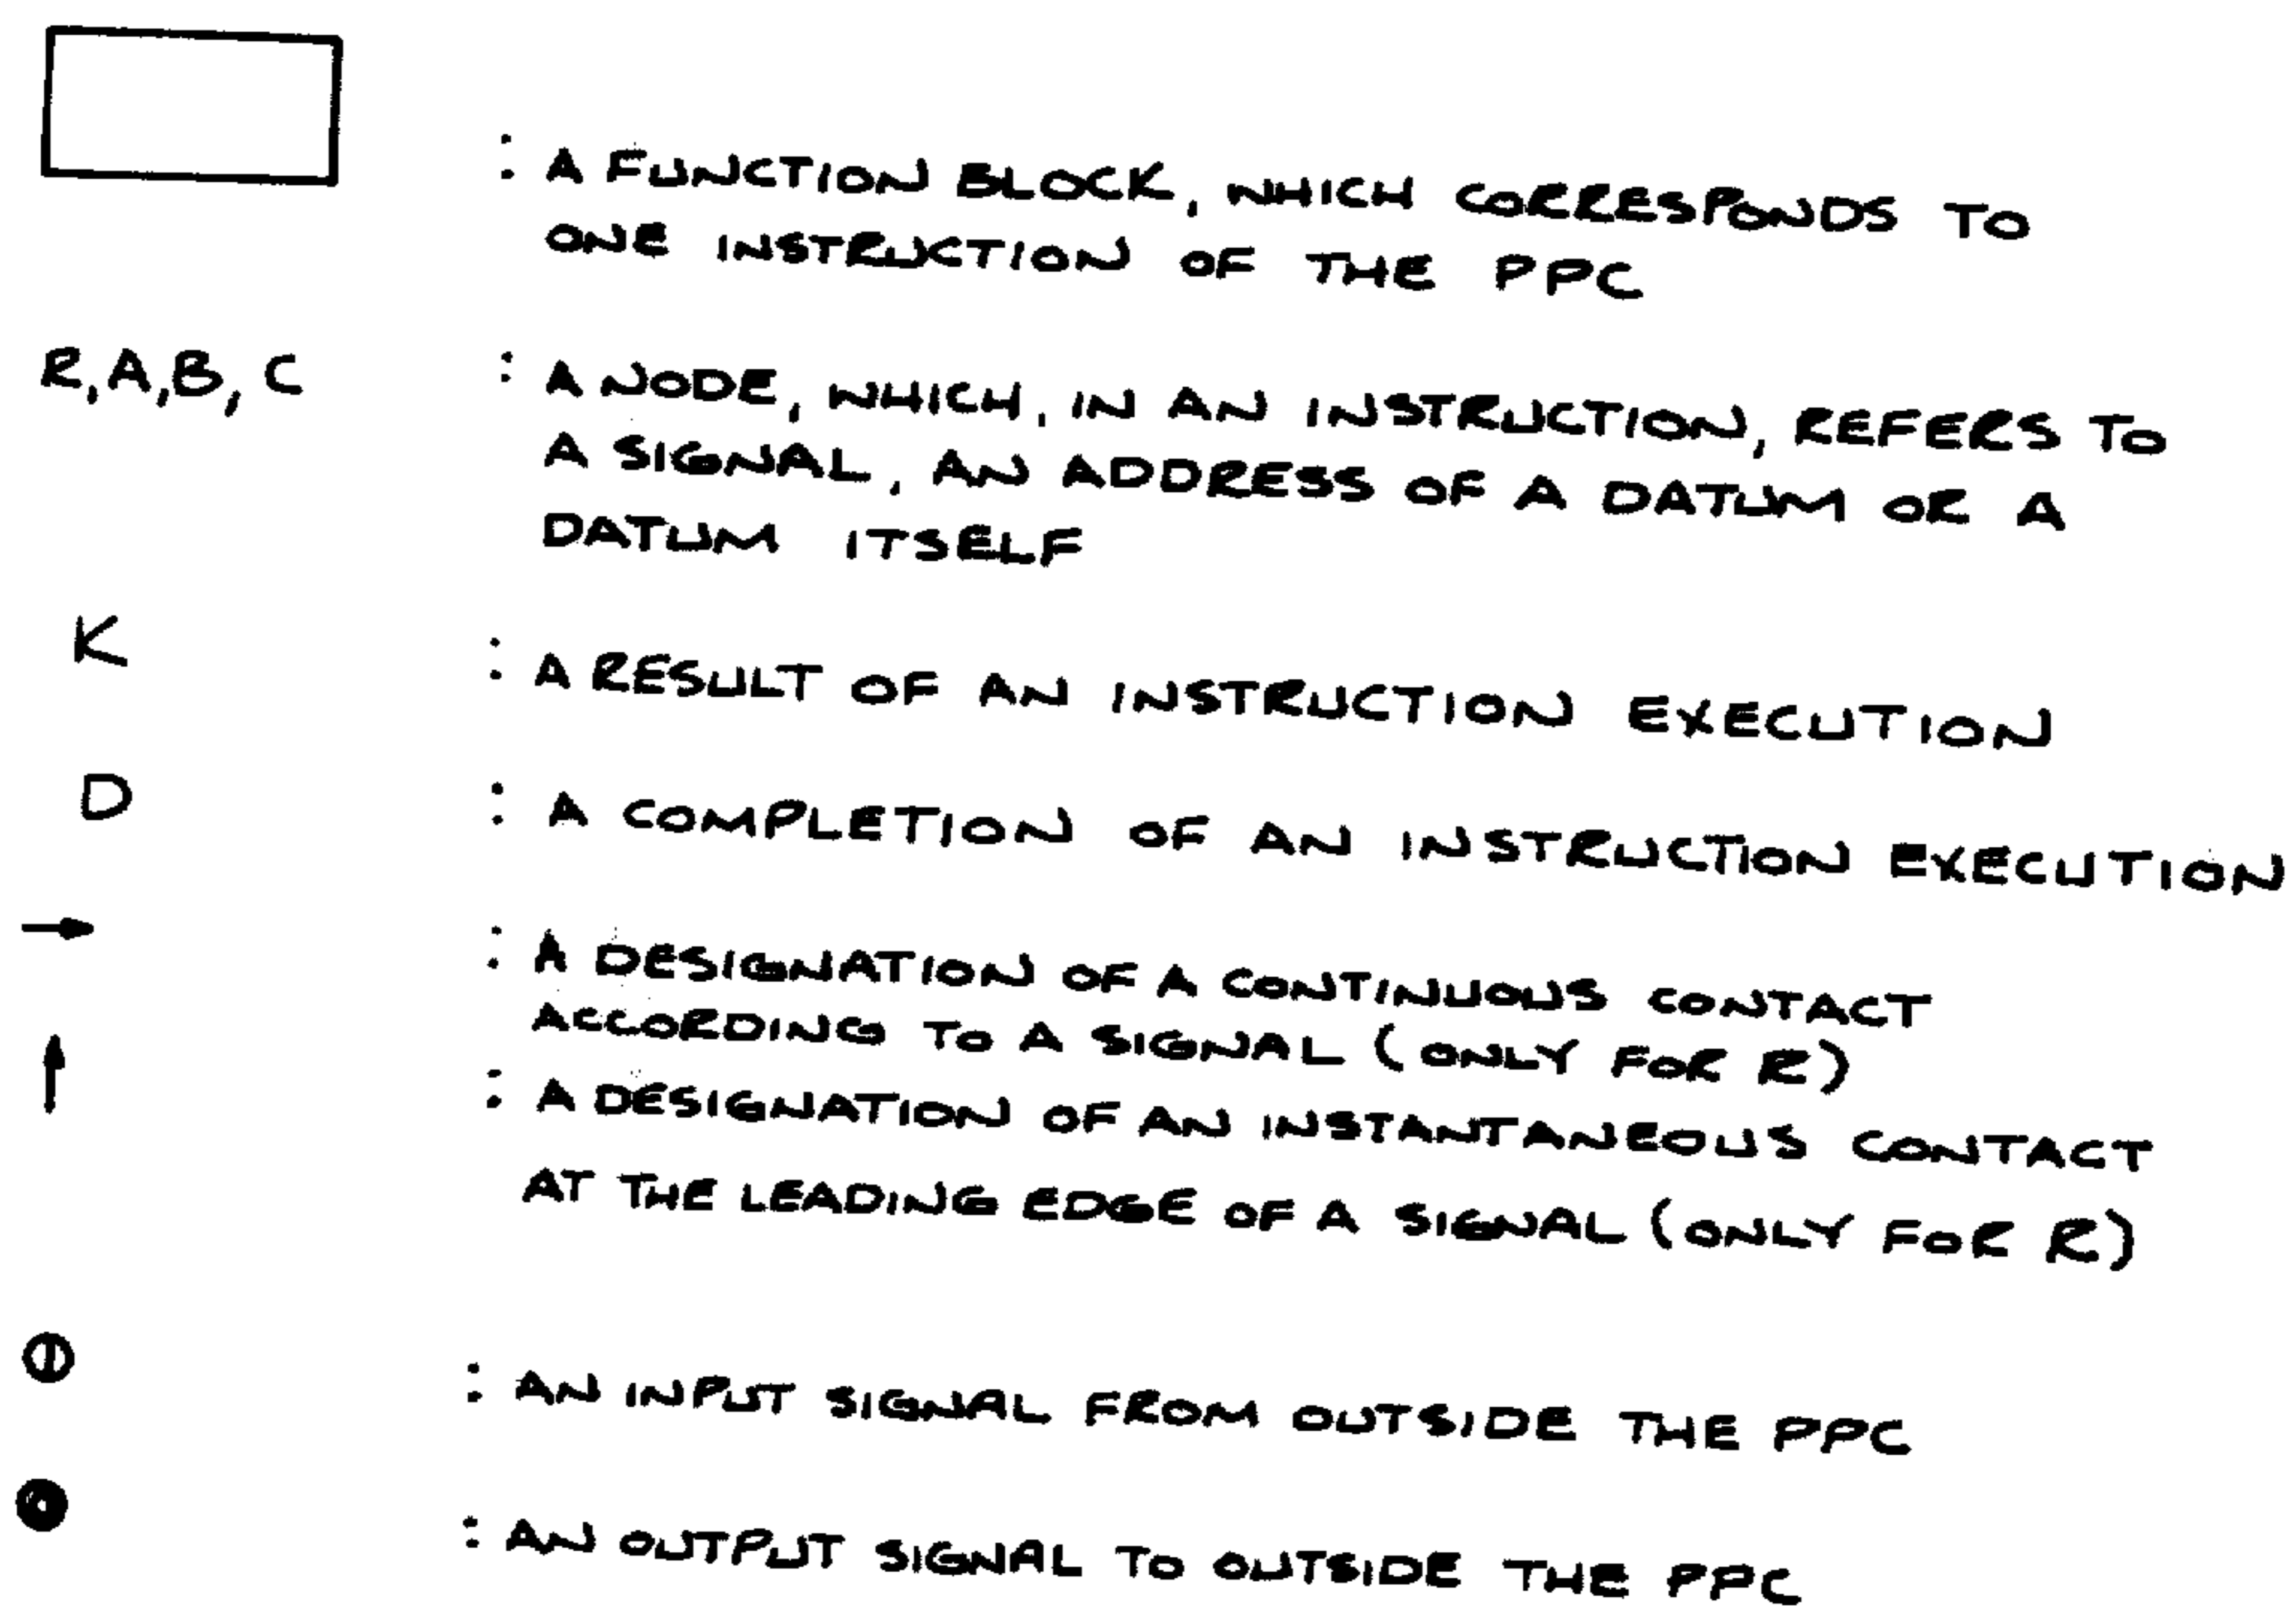 : A FUNCTION BLOCK, WHICH CORRESPONDS TO
ONE INSTRUCTION OF THE PPC
R, A, B, C : A NODE, WHICH, IN AN INSTRUCTION, REFERS TO
A SIGNAL, AN ADDRESS OF A DATUM OR A
DATUM ITSELF
K : A RESULT OF AN INSTRUCTION EXECUTION
D : A COMPLETION OF AN INSTRUCTION EXECUTION
→ : A DESIGNATION OF A CONTINUOUS CONTACT
ACCORDING TO A SIGNAL (ONLY FOR R)
↑ : A DESIGNATION OF AN INSTANTANEOUS CONTACT
AT THE LEADING EDGE OF A SIGNAL (ONLY FOR R)
: AN INPUT SIGNAL FROM OUTSIDE THE PPC
: AN OUTPUT SIGNAL TO OUTSIDE THE PPC